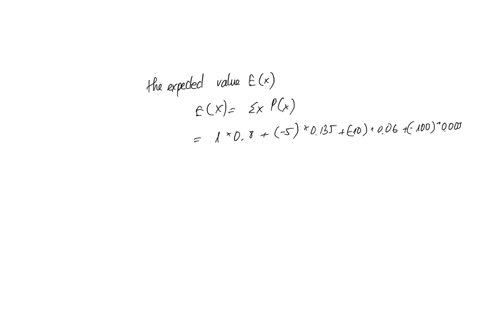 the expected value E(x)
E(X) = Σx P(x)
= 1 * 0.8 + (-5) * 0.135 + (-10) * 0.06 + (-100) * 0.005